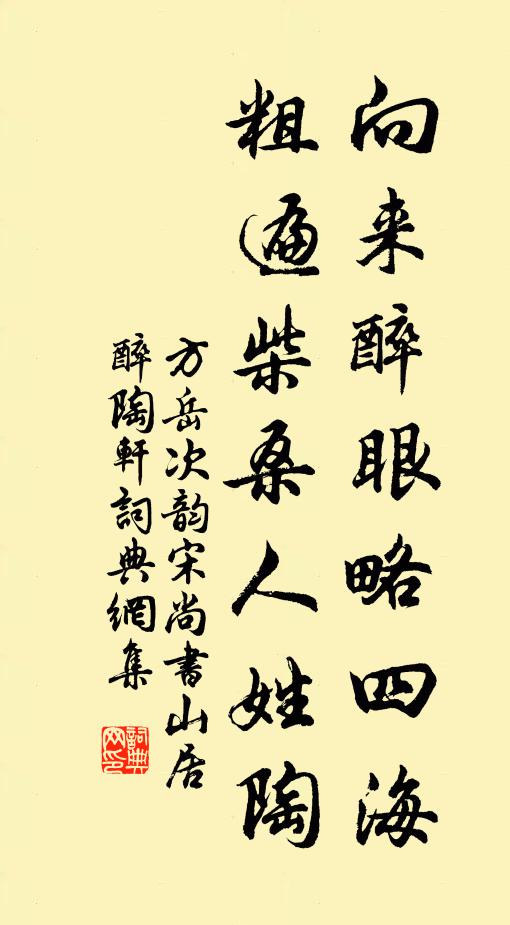 向来醉眼略四海
粗遍柴桑人姓陶
方岳次韵宋尚書山居
醉陶軒詞典網集
詞典
网印